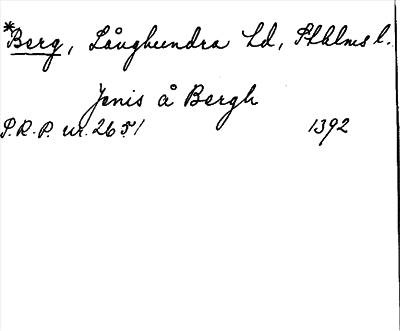 *Berg, Långhundra hd, Sthlms l.
Jenis å Bergh
P.R.P. nr. 2651 1392